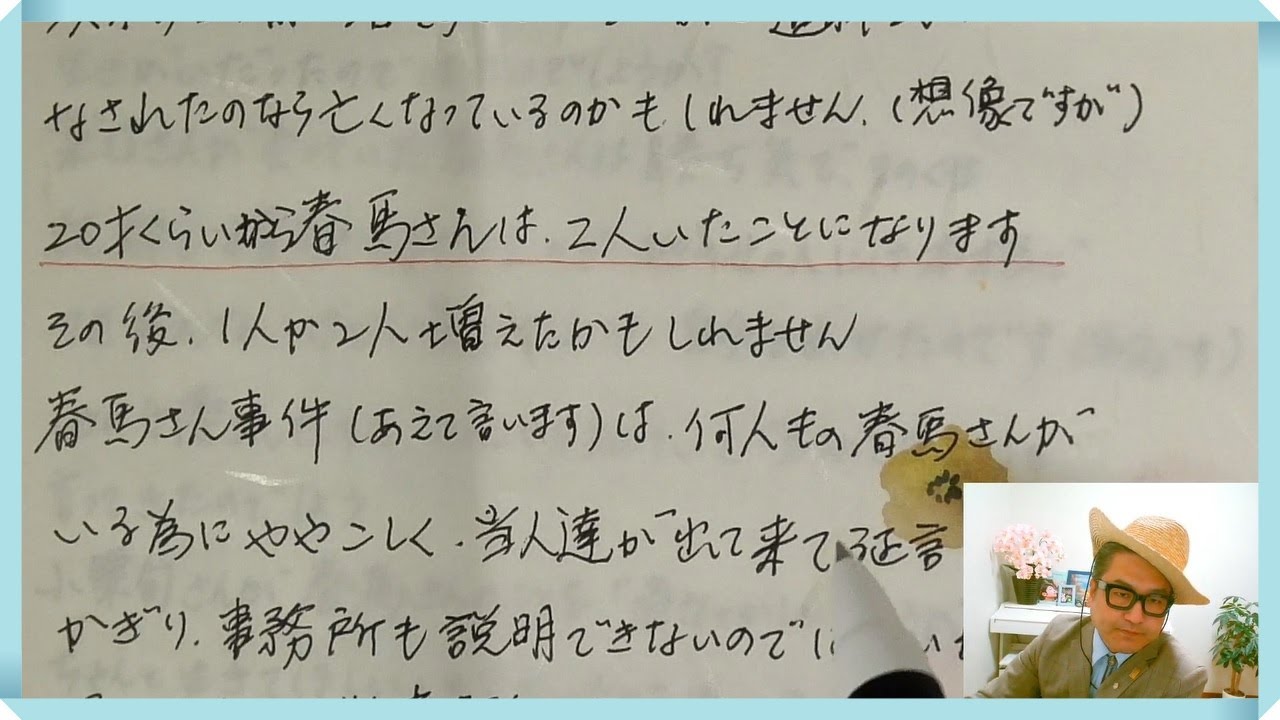 なされたのなら亡くなっているのかもしれません.(想像ですが)
20才くらいから春馬さんは.2人いたことになります
その後.1人か2人増えたかもしれません
春馬さん事件(あえて言います)は.何人もの春馬さんが
いる為にややこしく.当人達が出て来て証言
かぎり.事務所も説明できないので